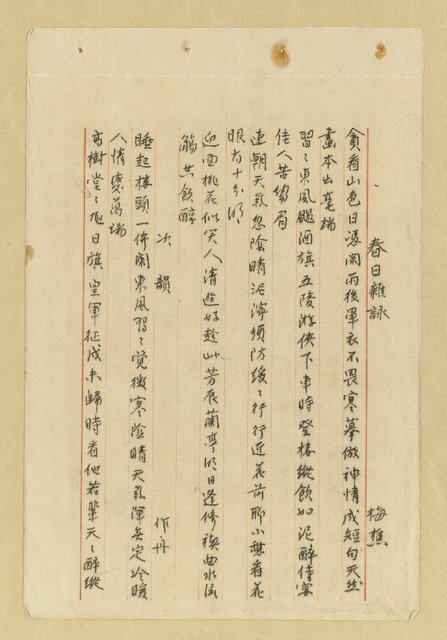 春日雜詠　梅樵
貪看山色日凭闌雨後單衣不畏寒摹倣神情成短句天然
畫本出毫端
習〻東風颺酒旗五陵游俠下車時登樓縱飲如泥醉侍宴
佳人苦縐眉
連朝天氣忽陰晴泥濘須防緩〻行行近花前聊小憩看花
眼力十分明
迎面桃花似笑人清遊好趁此芳辰蘭亭明日逢修禊曲水流
觴共飲醇
次韻　作舟
睡起樓頭一倚闌東風習〻覺微寒陰晴天氣渾無定冷暖
人情變萬端
高樹堂〻旭日旗皇軍征戍未歸時看他若輩天〻醉縱